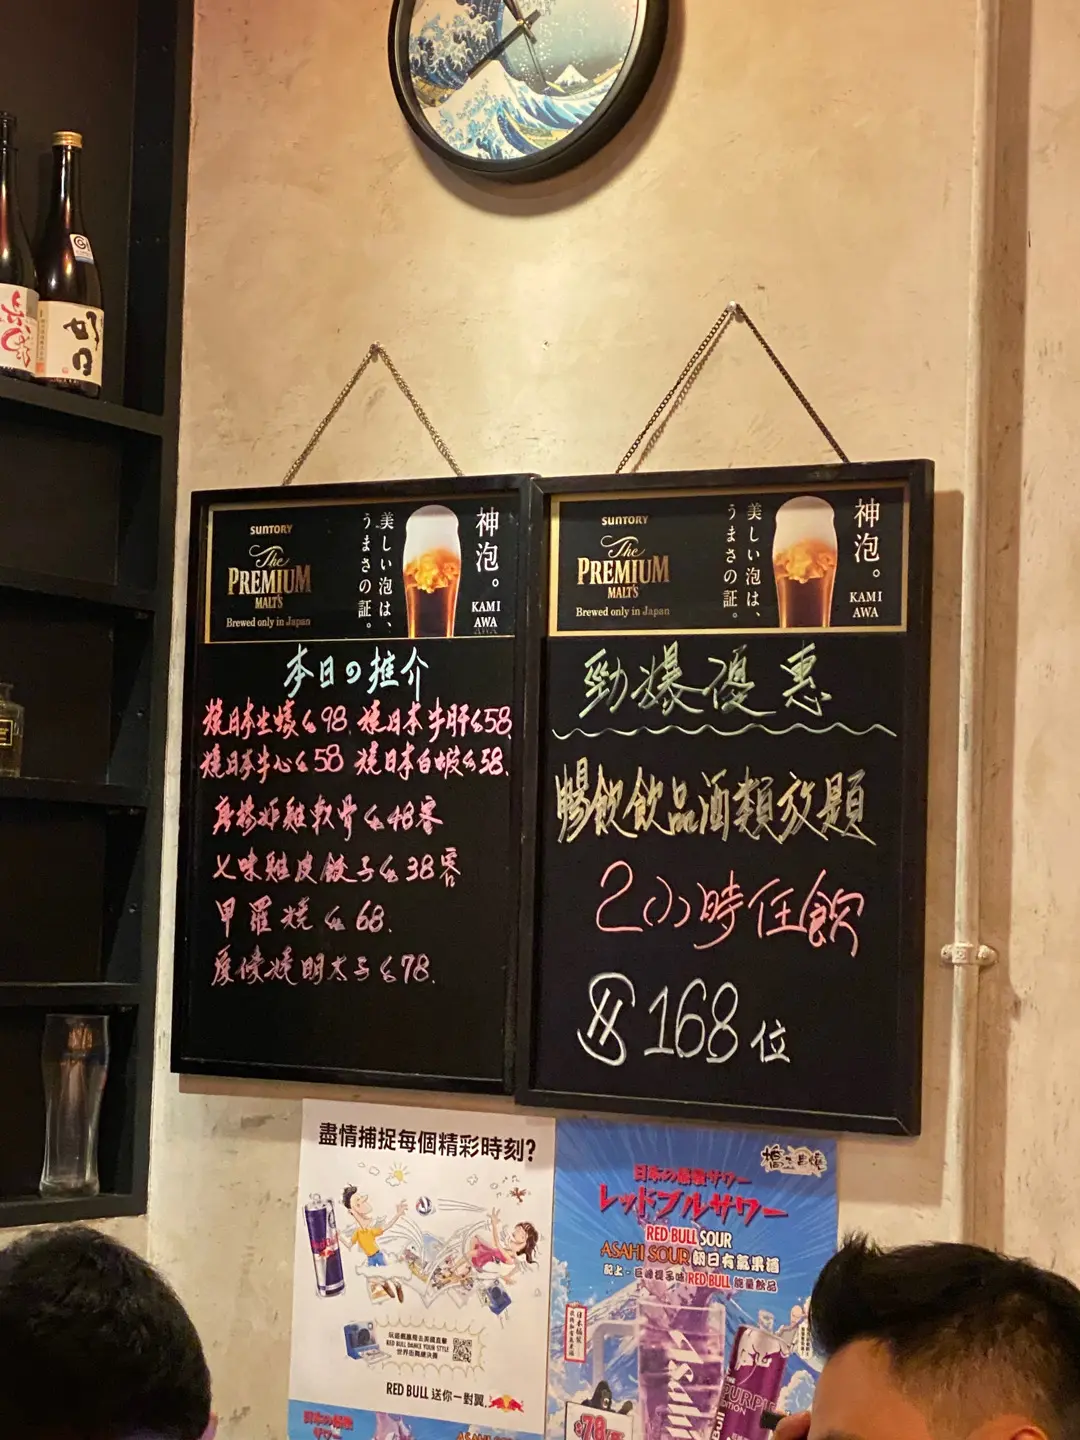 好日
SUNTORY
The
PREMIUM
MALT'S
Brewed only in Japan
美しい泡は、
うまさの証。
神泡。
KAMI
AWA
本日の推介
燒日本生蠔$98. 燒日本牛肝$58
燒日本牛心$58 燒日本白蝦$58.
雞軟骨$48客
七味雞皮餃子$38客
甲羅燒$68.
燒明太子$78.
SUNTORY
The
PREMIUM
MALT'S
Brewed only in Japan
美しい泡は、
うまさの証。
神泡。
KAMI
AWA
勁爆優惠
暢飲飲品酒類放題
2小時任飲
$168位
盡情捕捉每個精彩時刻?
RED BULL DANCE YOUR STYLE
世界街舞總決賽
RED BULL 送你一對翼.
日本の感激サワー
レッドブルサワー
RED BULL SOUR
ASAHI SOUR 朝日有氣果酒
配上 - 巨峰提子味 RED BULL 能量飲品
Asahi
PURPLE
EDITION
$78